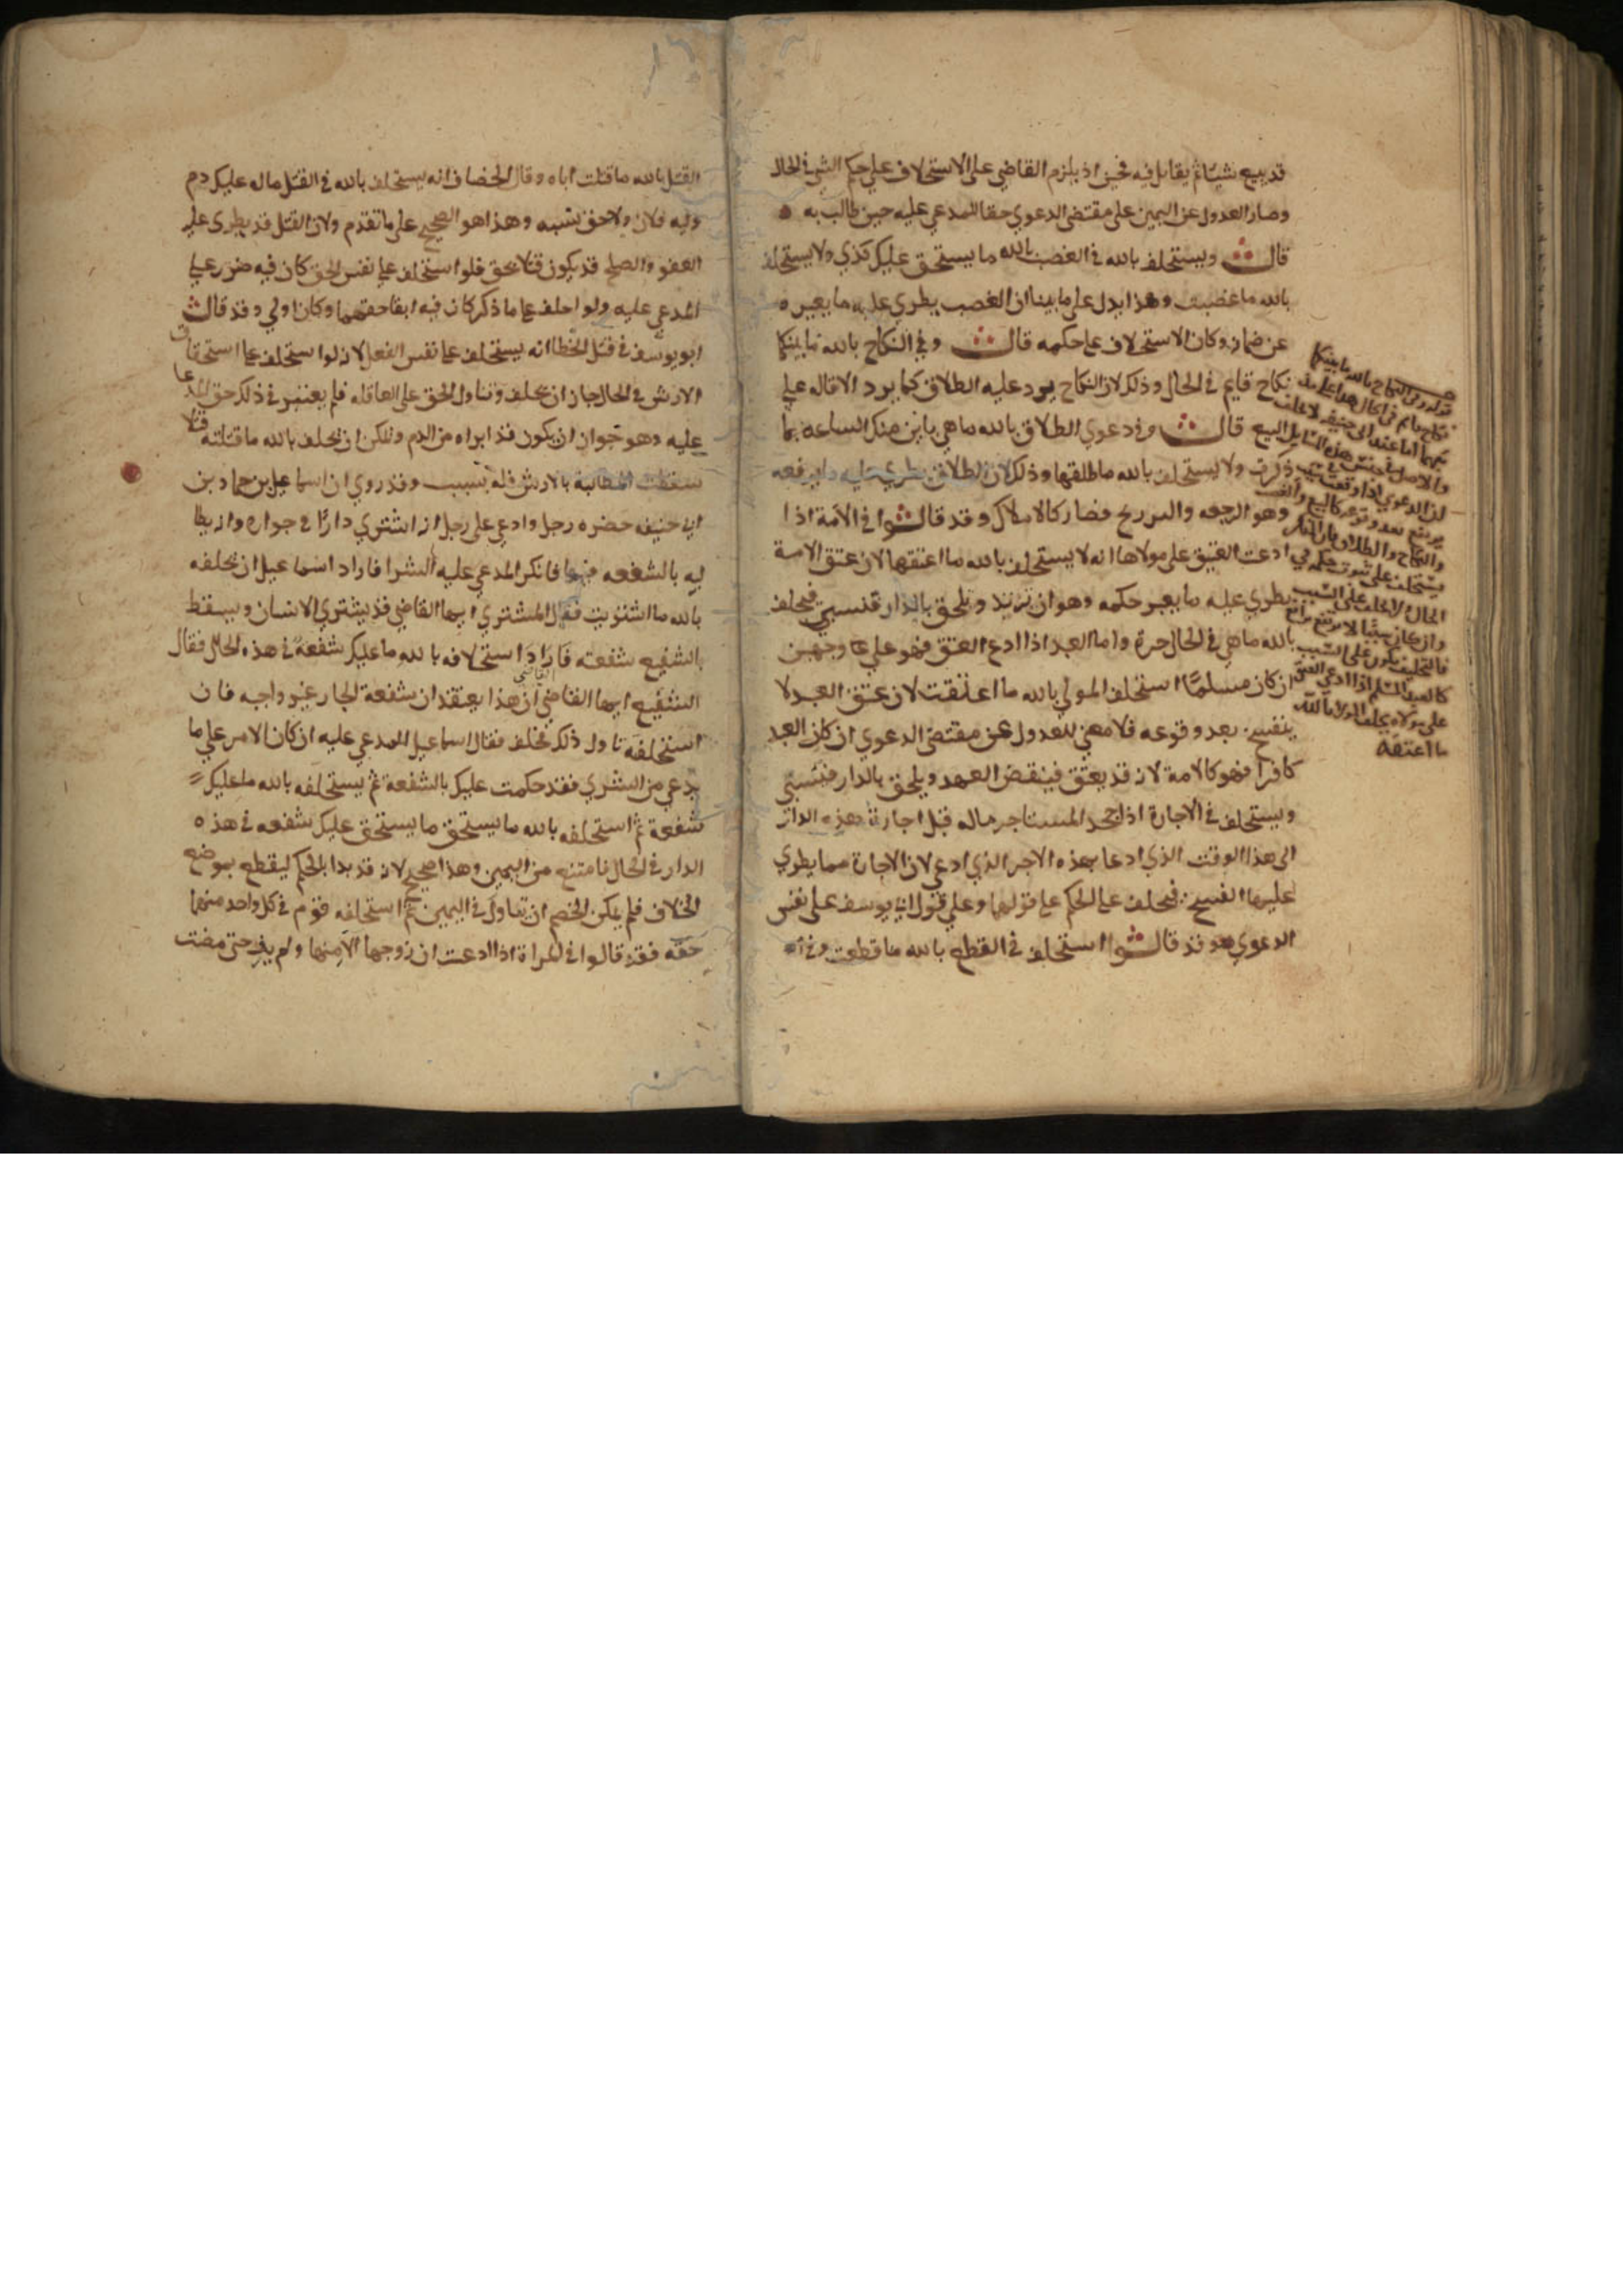 قد يبيع شيئا ثم يقايل فيه فحين اذ يلزم القاضي على الاستحلاف على حكم الشي في الحال
وصار العدول عن اليمين على مقتضى الدعوي حقا للمدعي عليه حين طالب به ٥
قال ويستحلف بالله في الغصب بالله ما يستحق عليك كذي ولا يستحلف
بالله ما غصبت وهذا يدل على ما بينا ان الغصب يطري عليه ما يغيره
عن ضمان وكان الاستحلاف على حكمه قال وفي النكاح بالله ما بينكما
نكاح قايم في الحال وذلك لان النكاح يرد عليه الطلاق كما يرد الاقاله علي
البيع قال وفي دعوي الطلاق بالله ما هي باين منك الساعه بما
ذكرت ولا يستحلف بالله ما طلقها وذلك لان الطلاق يطري عليه ما يرفعه
وهو الرجعه والتزويج فصار كالاملاك وقد قالوا في الامة اذا
ادعت العتق على مولاها انه لا يستحلف بالله ما اعتقها لان عتق الامة
يطري عليه ما يغير حكمه وهو ان ترتد وتلحق بالدار فتسبى فيحلف
بالله ما هي في الحال حرة واما العبد اذا ادع العتق فهو علي وجهين
ان كان مسلمًا استحلف المولي بالله ما اعتقت لان عتق العبد لا
ينفسخ بعد وقوعه فلا معني للعدول عن مقتضى الدعوي ان كان العبد
كافرا فهو كالامة لانه قد يعتق فينقض العهد ويلحق بالدار فيسبى
ويستحلف في الاجارة اذا جحد المستاجر ماله قبل اجارة هذه الدار
الى هذا الوقت الذي ادعا بهذه الاجر الذي ادعي لان الاجارة مما يطري
عليها الفسخ فيحلف على الحكم على قولهما وعلي قول ابي يوسف على نفس
الدعوي وقد قالوا استحلف في القطع بالله ما قطعت وفي
قوله وفي النكاح بالله ما بينكما
نكاح قايم في الحال هذا على
قولهما اما عند ابي حنيفه لا يحلف
والاصل في جنس هذه المسايل
ان الدعوي اذا وقعت
يرتفع بعد وقوعه كالبيع والغصب
والنكاح والطلاق فان المنكر
يستحلف على ثبوت حكمه في
الحال ولا يحلف على السبب
وان كان سببًا لا يرتفع برافع
فالتحليف يكون على السبب
كالعبد المسلم اذا ادعي العتق
على مولاه يحلف المولا بالله
ما اعتقه
القتل بالله ما قتلت اباه وقال الخصاف انه يستحلف بالله في القتل ماله عليك دم
وليه فلان ولا حق بسببه وهذا هو الصحيح على ما تقدم ولان القتل قد يطرى عليه
العفو والصلح قد يكون قتلا بحق فلو استحلف على نفس الحق كان فيه ضرر على
المدعي عليه ولو احلف على ما ذكر كان فيه ابقا حقهما وكان اولي وقد قال
ابو يوسف في قتل الخطا انه يستحلف على نفس الفعل لانه لو استحلف على استحقاق
الارش في الحال جاز ان يحلف وتناول الحق على العاقله فلم يعتبر في ذلك حق المدعا
عليه وهو جواز ان يكون قد ابراه من الدم ولكن ان يحلف بالله ما قتلته قتلا
سقطت المطالبة بالارش فله بسبب وقد روي ان اسماعيل بن حماد بن
ابي حنيفه حضره رجل وادعي على رجل انه اشتري دارًا في جواره وانه يطا
لبه بالشفعه فيها فانكر المدعي عليه الشرا فاراد اسماعيل ان يحلفه
بالله ما اشتريت فقال المشتري ايها القاضي قد يشتري الانسان ويسقط
الشفيع شفعته فاراد استحلافه بالله ما عليك شفعة في هذه الحال فقال
الشفيع ايها القاضي ان هذا يعتقد ان شفعة الجار غير واجبه فان
استحلفته تاول ذلك فحلف فقال اسماعيل للمدعي عليه ان كان الامر علي ما
يدعي من الشري فقد حكمت عليك بالشفعة ثم يستحلفه بالله ما عليك
شفعة ثم استحلفه بالله ما يستحق ما يستحق عليك شفعه في هذه
الدار في الحال فامتنع من اليمين وهذا صحيح لانه قد بدا بالحكم ليقطع بموضع
الخلاف فلم يمكن الخصم ان يتاول في اليمين ثم استحلفه فوم في كل واحد منهما
حقه فقد قالوا في المراة اذا ادعت ان زوجها الا منها ولم يف حتى مضت